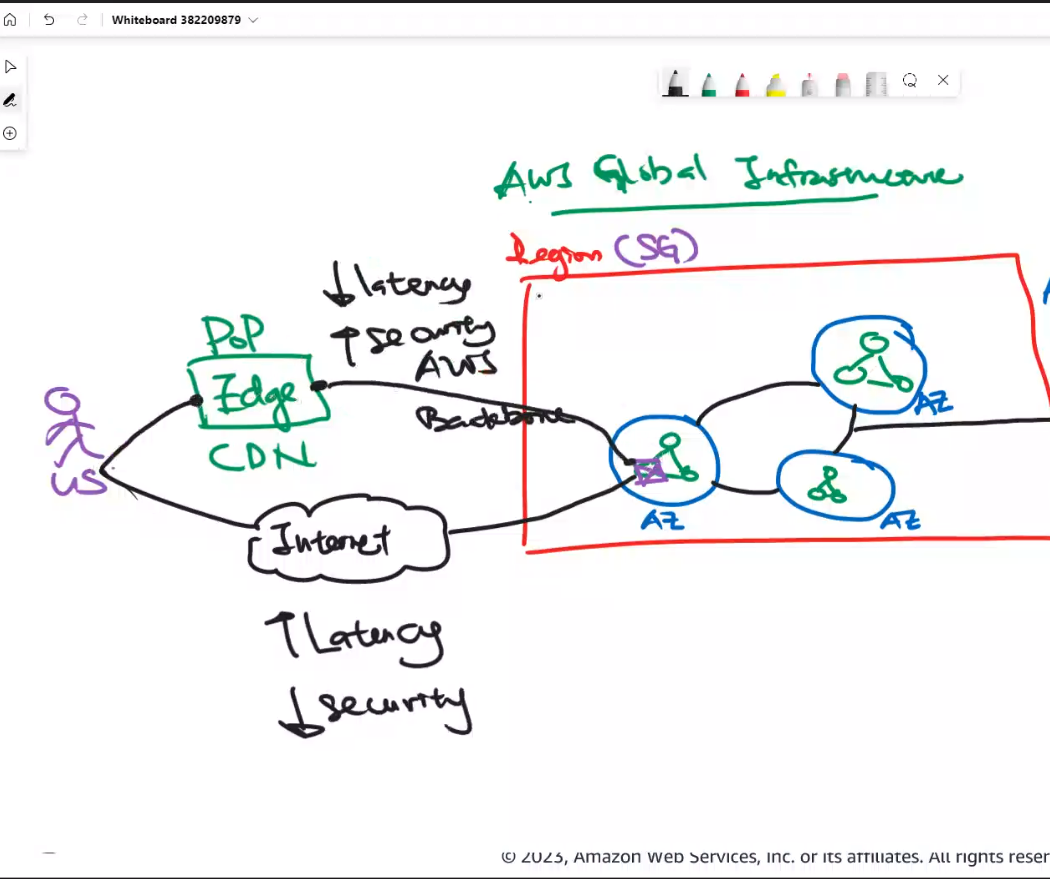 Whiteboard 382209879
AWS Global Infrastructure
Region (SG)
↓ latency
↑ security
AWS
Backbone
PoP
Edge
CDN
US
Internet
↑ Latency
↓ security
AZ
AZ
AZ
© 2023, Amazon Web Services, Inc. or its affiliates. All rights reser